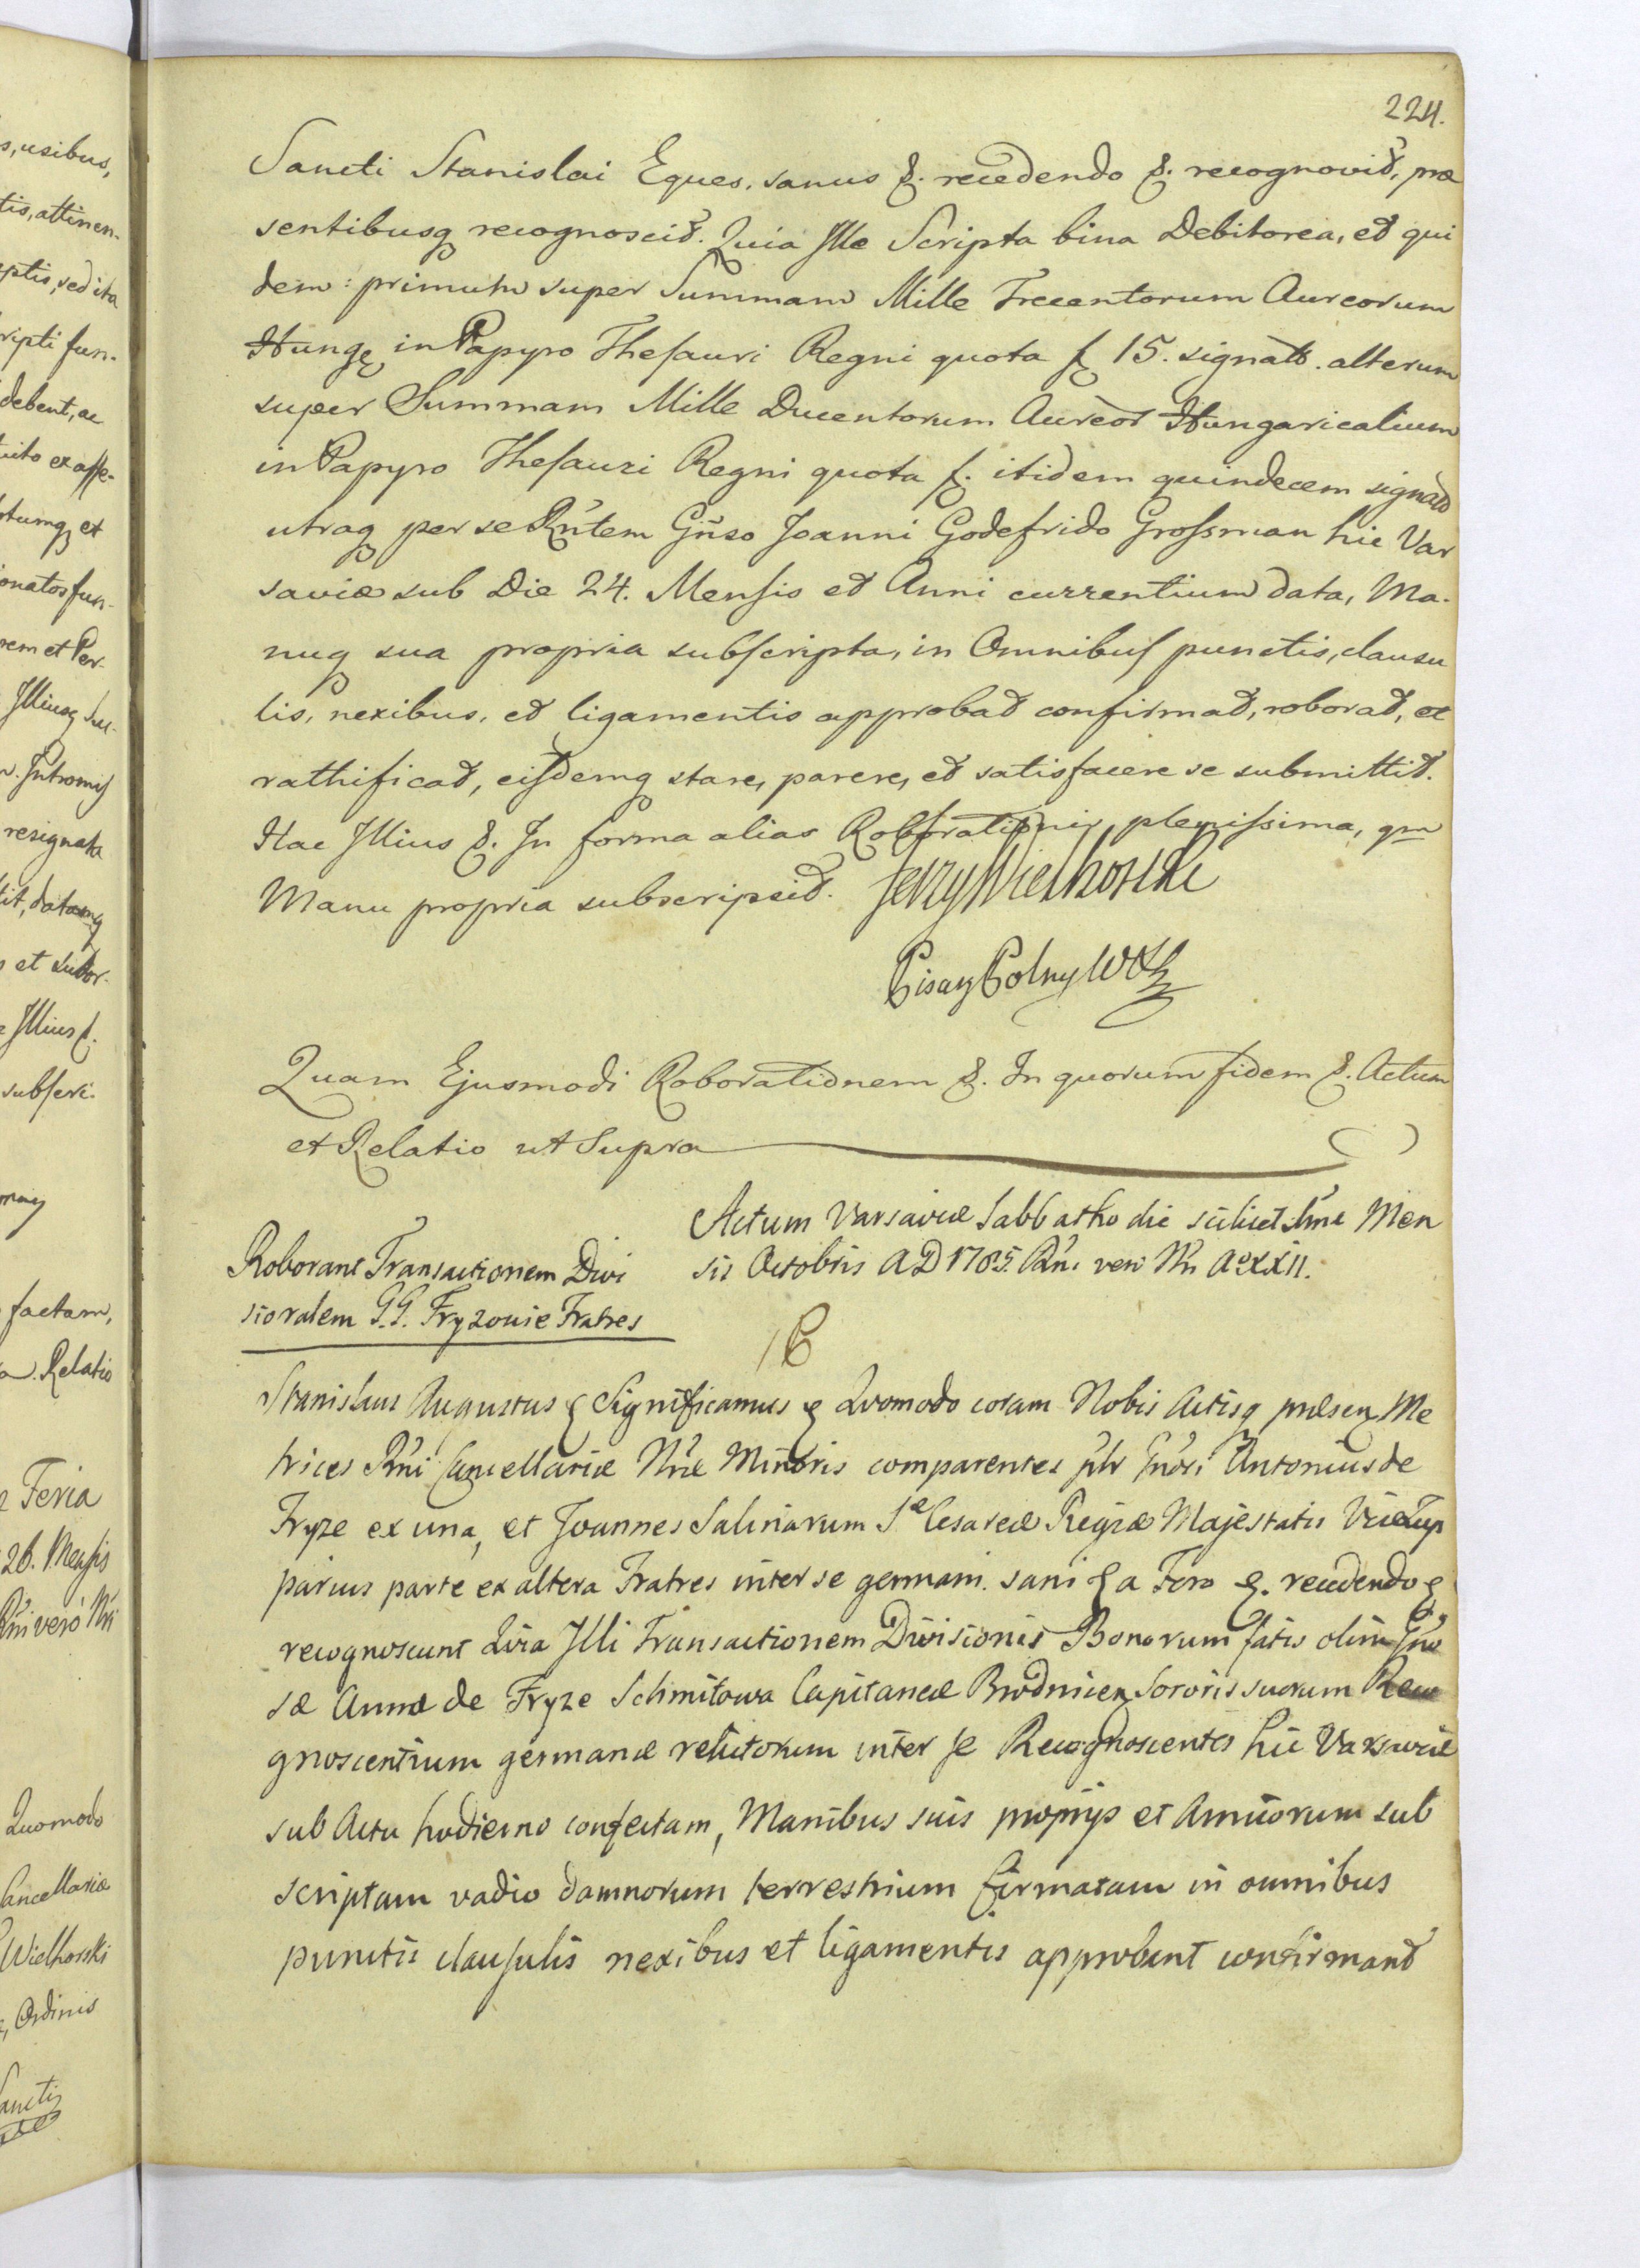 224.
Sancti Stanislai Eques, sanus &. recedendo &. recognovit, præ
sentibusq recognoscit. Quia Ille Scripta bina Debitorea, et qui
dem: primum super Summam Mille Trecentorum Aureorum
Hung in Papyro Thesauri Regni quota f 15. signatt. alterum
super Summam Mille Ducentorum Aureor Hungaricalium
in Papyro Thesauri Regni quota f. itidem quindecem signatt
utraq per se Rntem Gnso Joanni Godefrido Grossman hic Var
saviæ sub Die 24. Mensis et Anni currentium data, Ma-
nuq sua propria subscripta, in Omnibus punctis, clausu
lis, nexibus, et ligamentis approbat confirmat, roborat, et
rathificat, eisdemq stare, parere, et satisfacere se submittit.
Hac Illius &. In forma alias Roborationis plenissima, qm
Manu propria subscripsit. Jerzy Wielhorski
Pisarz Polny WXL
Quam Ejusmodi Roborationem &. In quorum fidem &. Actum
et Relatio ut Supra
Actum Varsaviæ Sabbatho die scilicet 1ma Men
sis Octobris AD 1785. Rni. vero Nri Ao XXII.
Roborant Transactionem Divi
sioralem G.G. Fryzowie Fratres
Stanislaus Augustus & Significamus & Quomodo coram Nobis Actisq præsen Me
trices Rni Cancellariæ Nræ Minoris comparentes pltr Gnosi Antonius de
Fryze ex una, et Joannes Salinarum Sæ Cesareæ Regiæ Majestatis
parius parte ex altera Fratres inter se germani. sani & a Foro &. recedendo &
recognoscunt Quia Illi Transactionem Divisionis Bonorum fatis olim Gno
sæ Annæ de Fryze Schmitowa Capitaneæ Brodnicen Sororis suorum Reco
gnoscentium germanæ relictorum inter se Recognoscentes hic Varsaviæ
sub Actu hodierno confectam, Manibus suis proprijs et Amicorum sub
scriptam vadio damnorum terrestrium firmatam in omnibus
punctis clausulis nexibus et ligamentis approbant confirmant